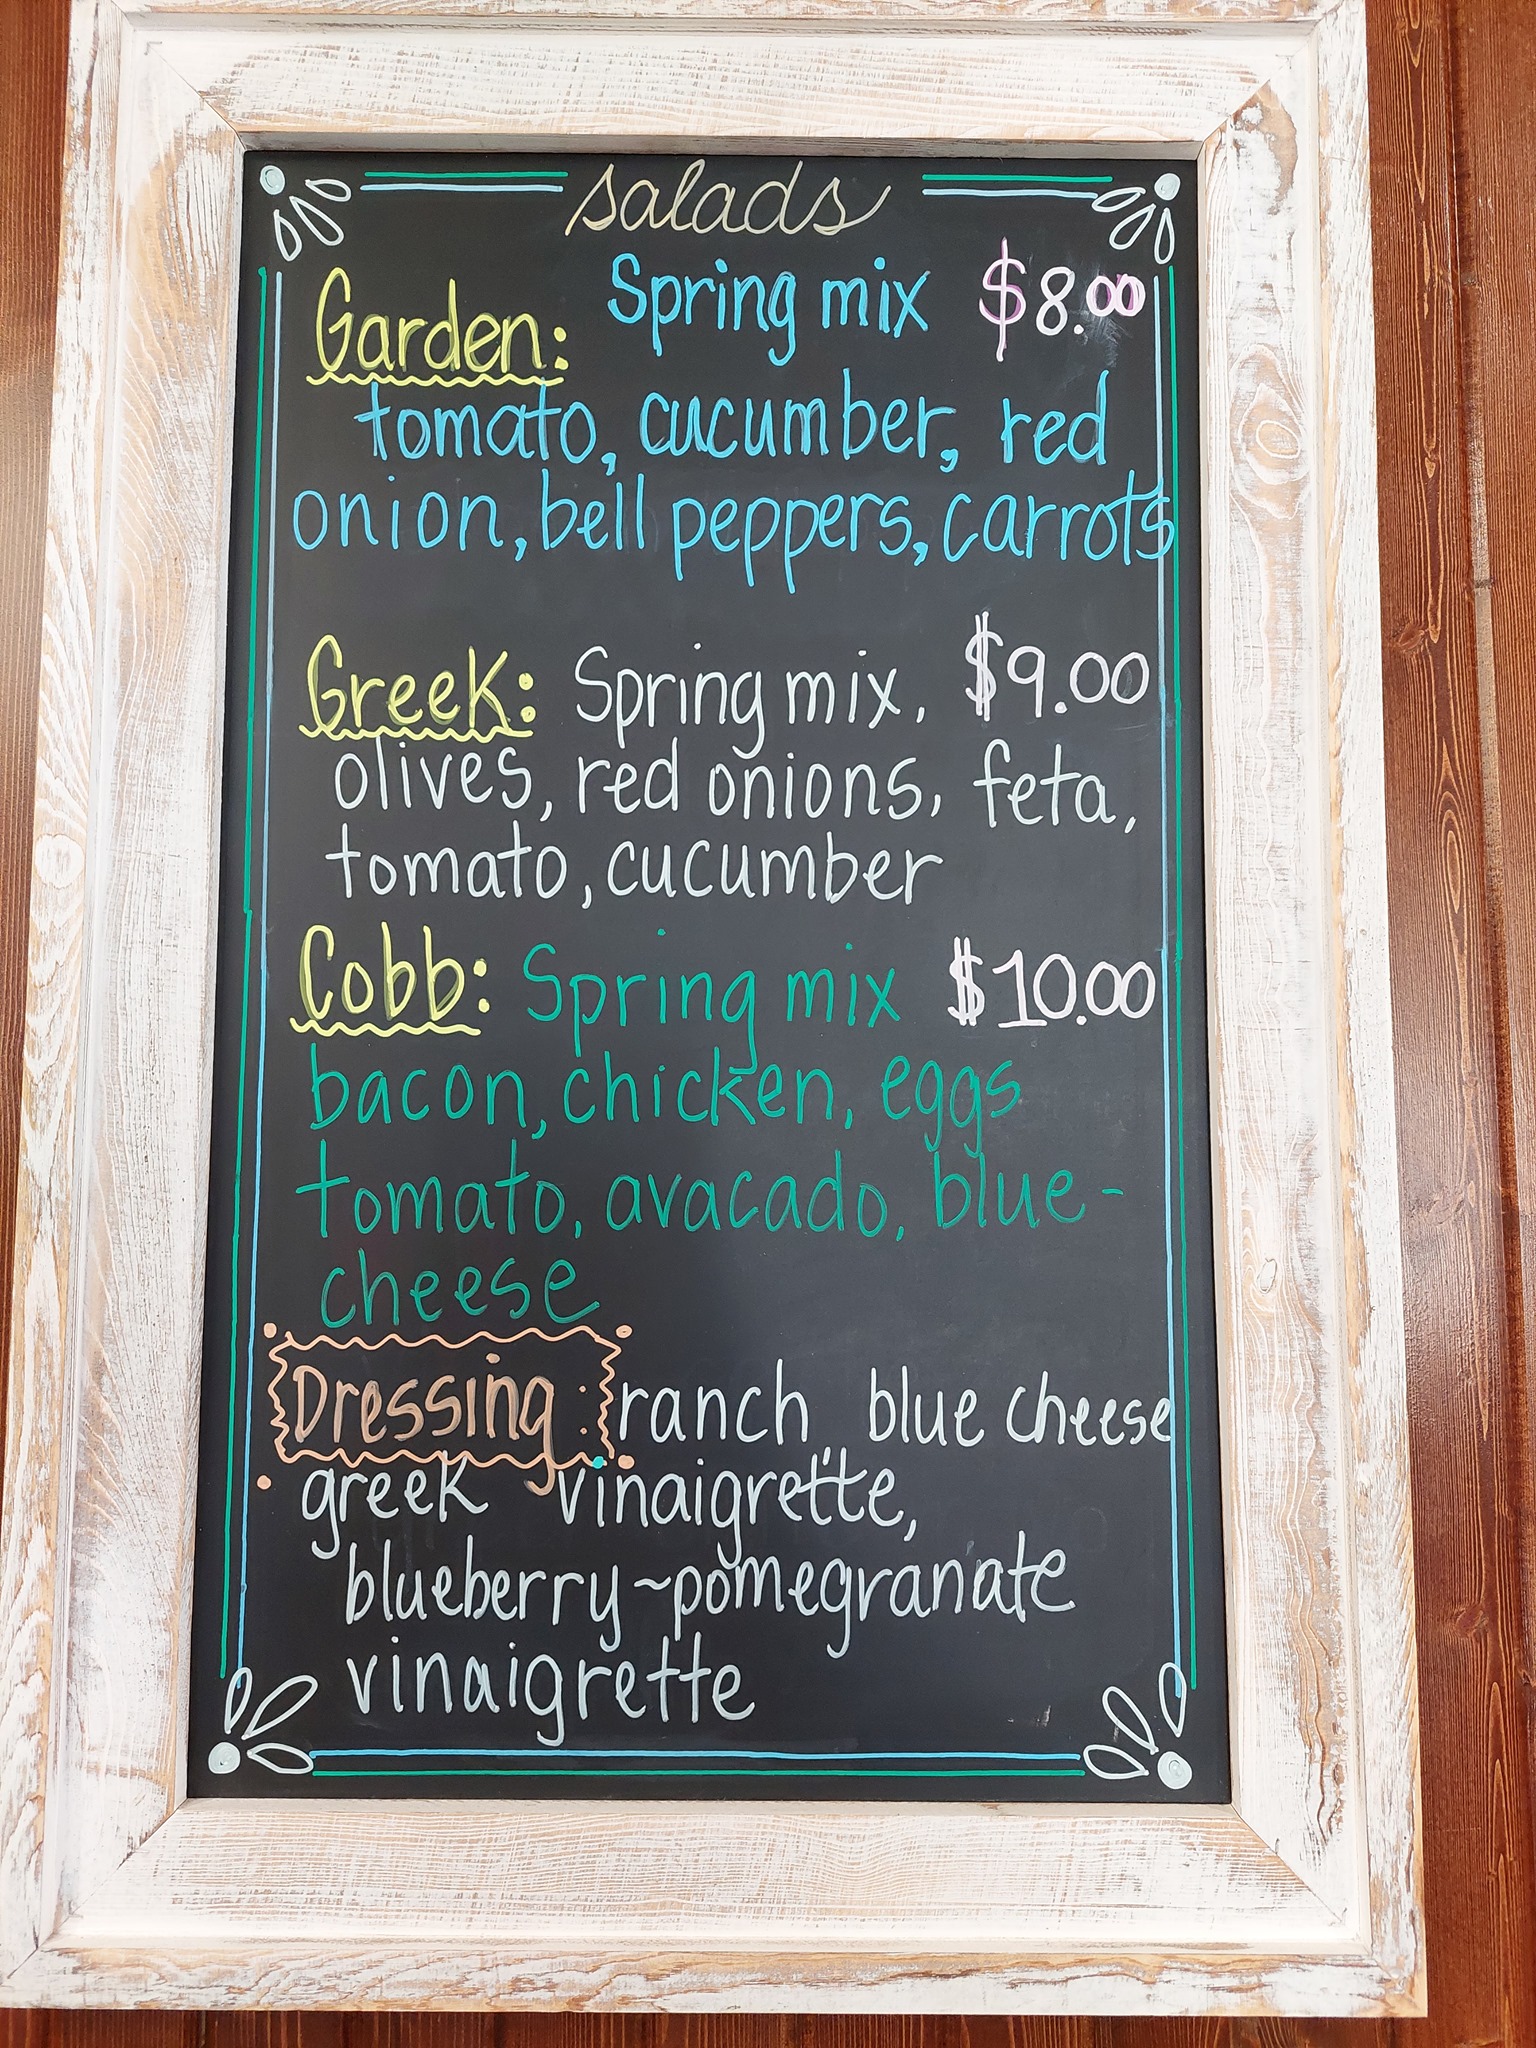 salads
Garden: Spring mix $8.00
tomato, cucumber, red
onion, bell peppers, carrots
Greek: Spring mix, $9.00
olives, red onions, feta,
tomato, cucumber
Cobb: Spring mix $10.00
bacon, chicken, eggs
tomato, avacado, blue-
cheese
Dressing: ranch blue cheese
greek vinaigrette,
blueberry~pomegranate
vinaigrette